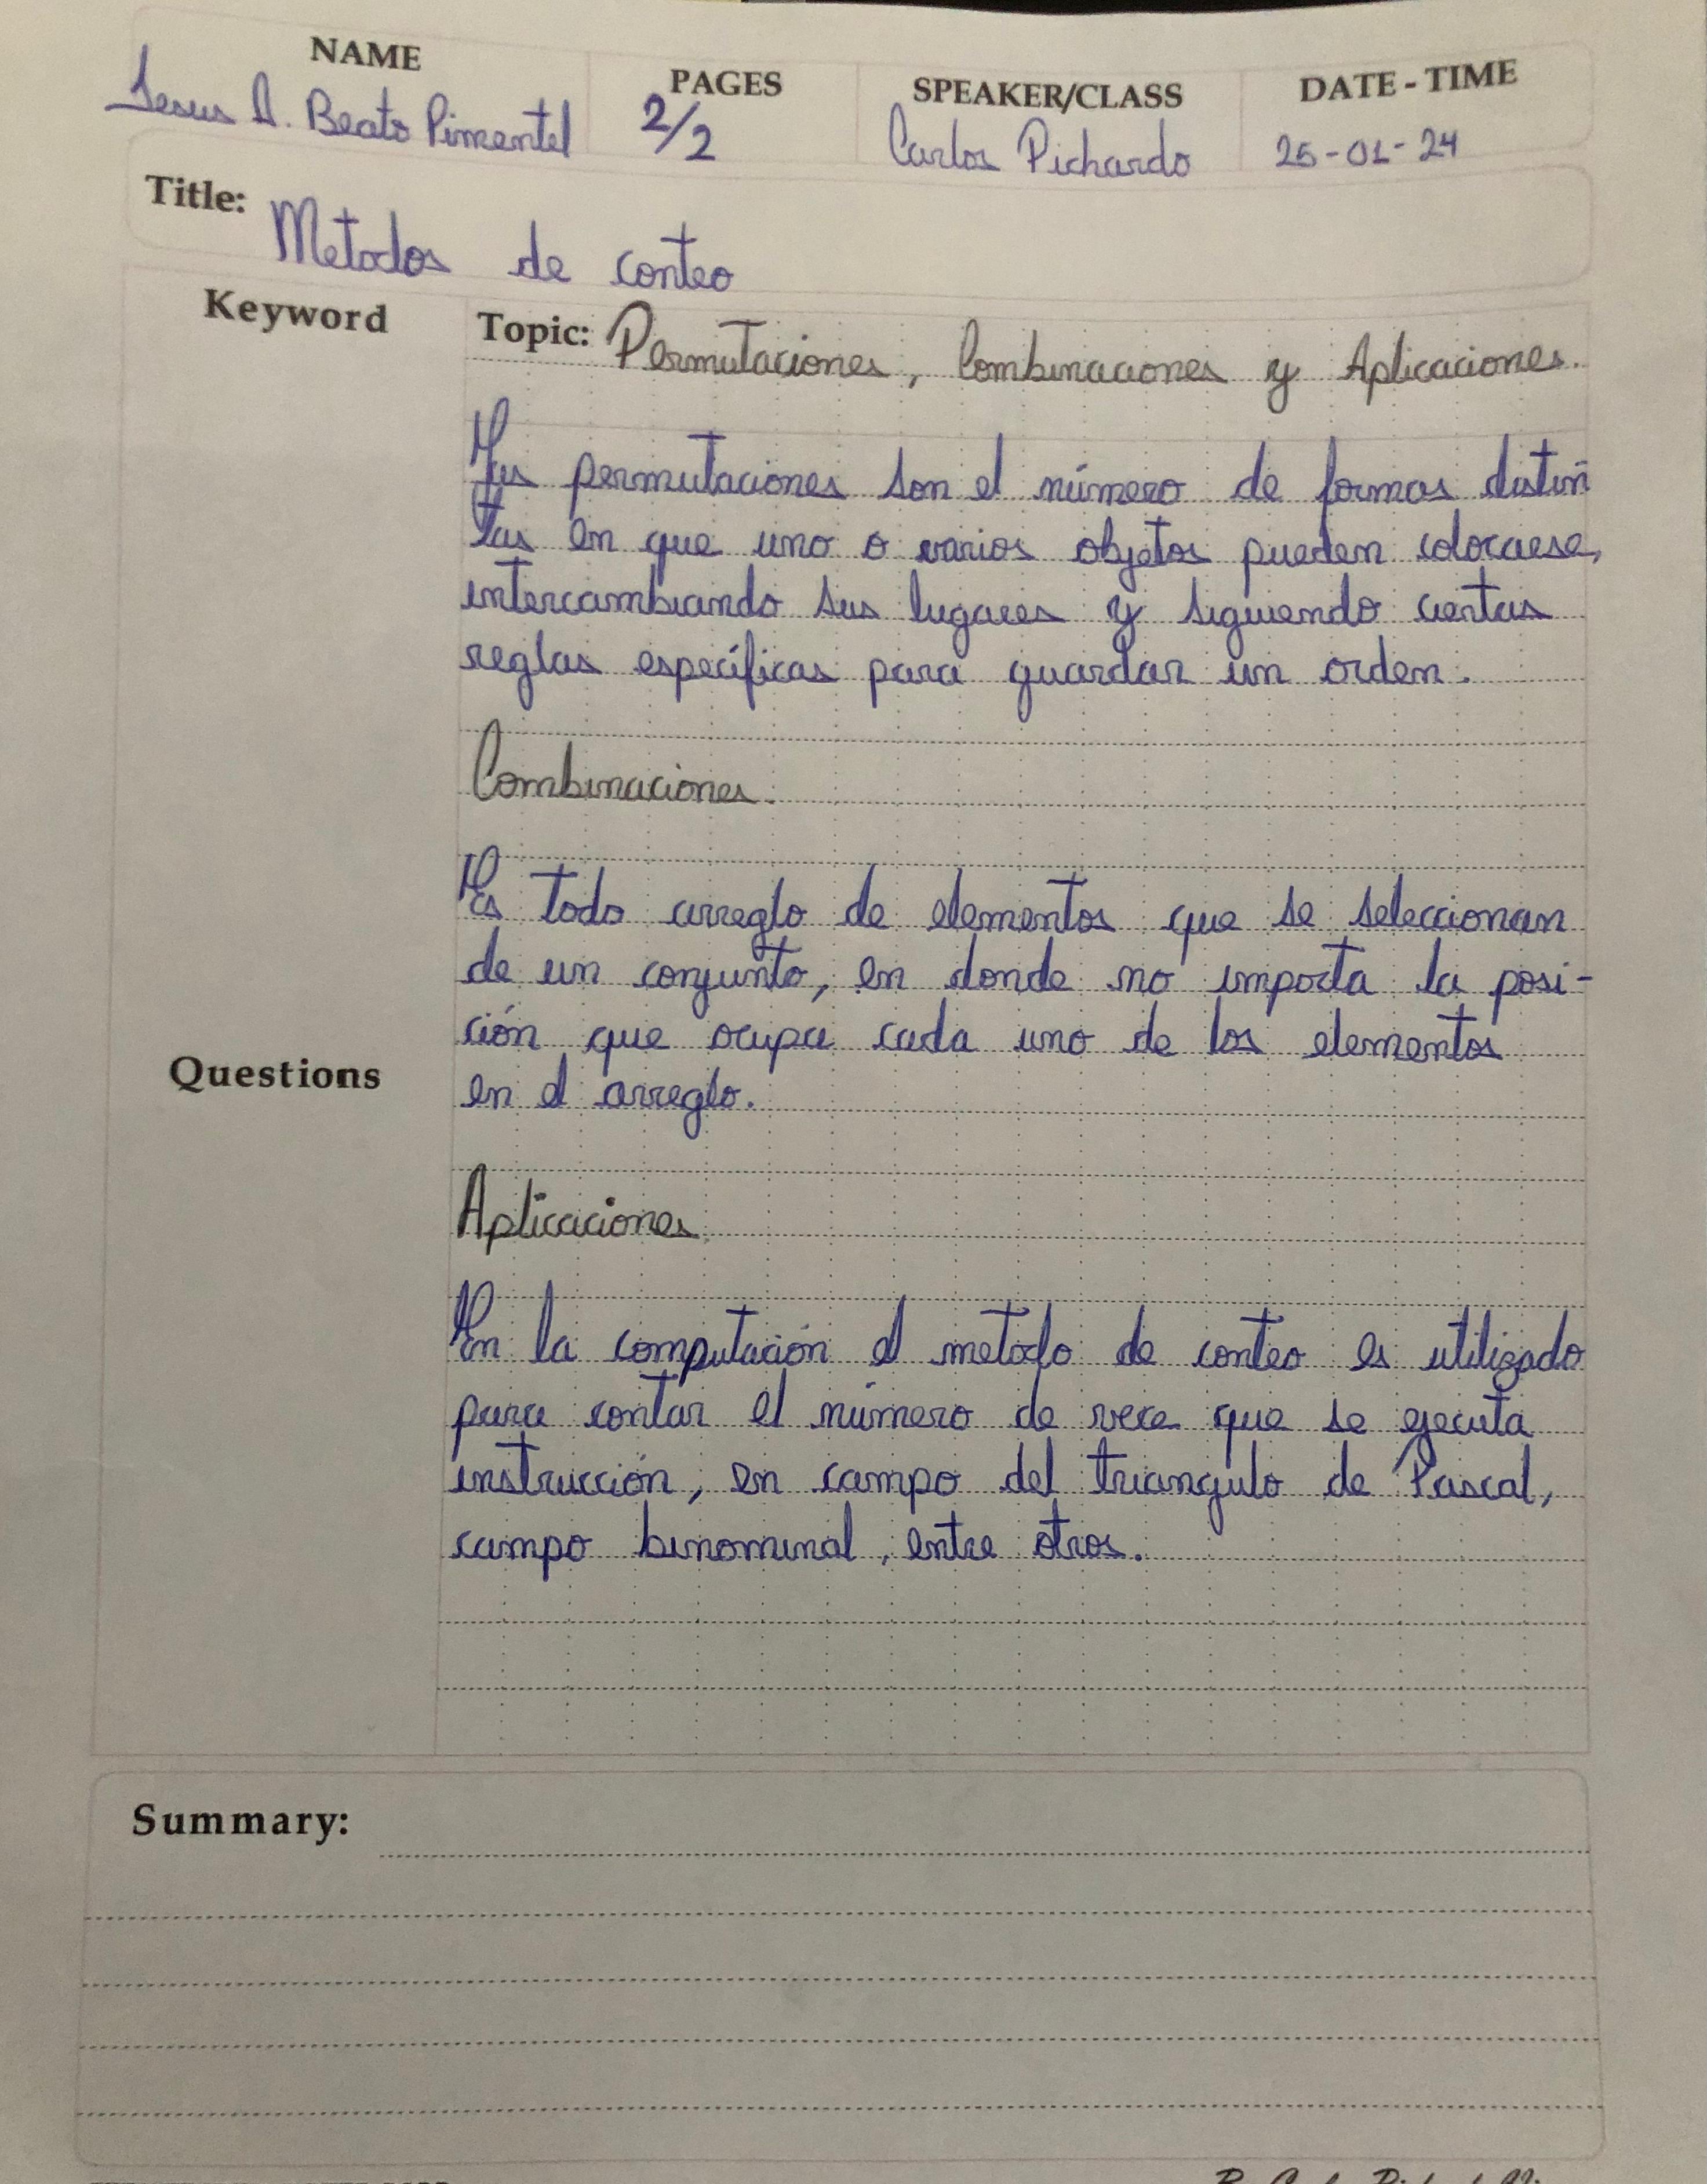 NAME PAGES SPEAKER/CLASS DATE - TIME
Jesus A. Beato Pimentel 2/2 Carlos Pichardo 25-01-24
Title: Metodos de conteo
Keyword
Topic: Permutaciones, Combinaciones y Aplicaciones.
Las permutaciones son el número de formas distin
tas en que uno o varios objetos pueden colocarse,
intercambiando sus lugares y siguiendo ciertas
reglas específicas para guardar un orden.
Combinaciones.
Es todo arreglo de elementos que se seleccionan
de un conjunto, en donde no importa la posi-
ción que ocupa cada uno de los elementos
Questions
en el arreglo.
Aplicaciones
En la computación el metodo de conteo es utilizado
para contar el número de vece que se ejecuta
instrucción, en campo del triangulo de Pascal,
campo binominal, entre otros.
Summary: